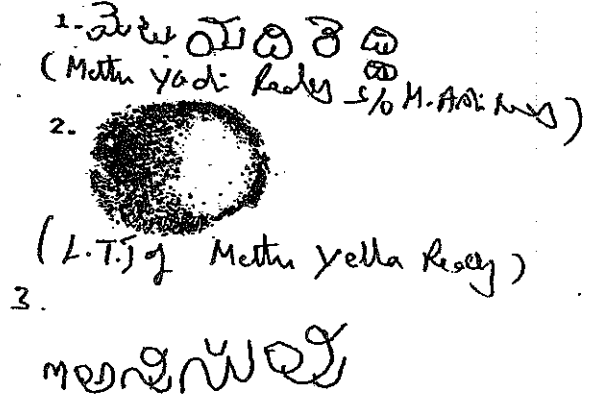 1. మెట్టు యాది రెడ్డి
(Mettu Yadi Reddy S/o M. Adi Reddy)
2.
(L.T.I of Mettu Yella Reddy)
3.